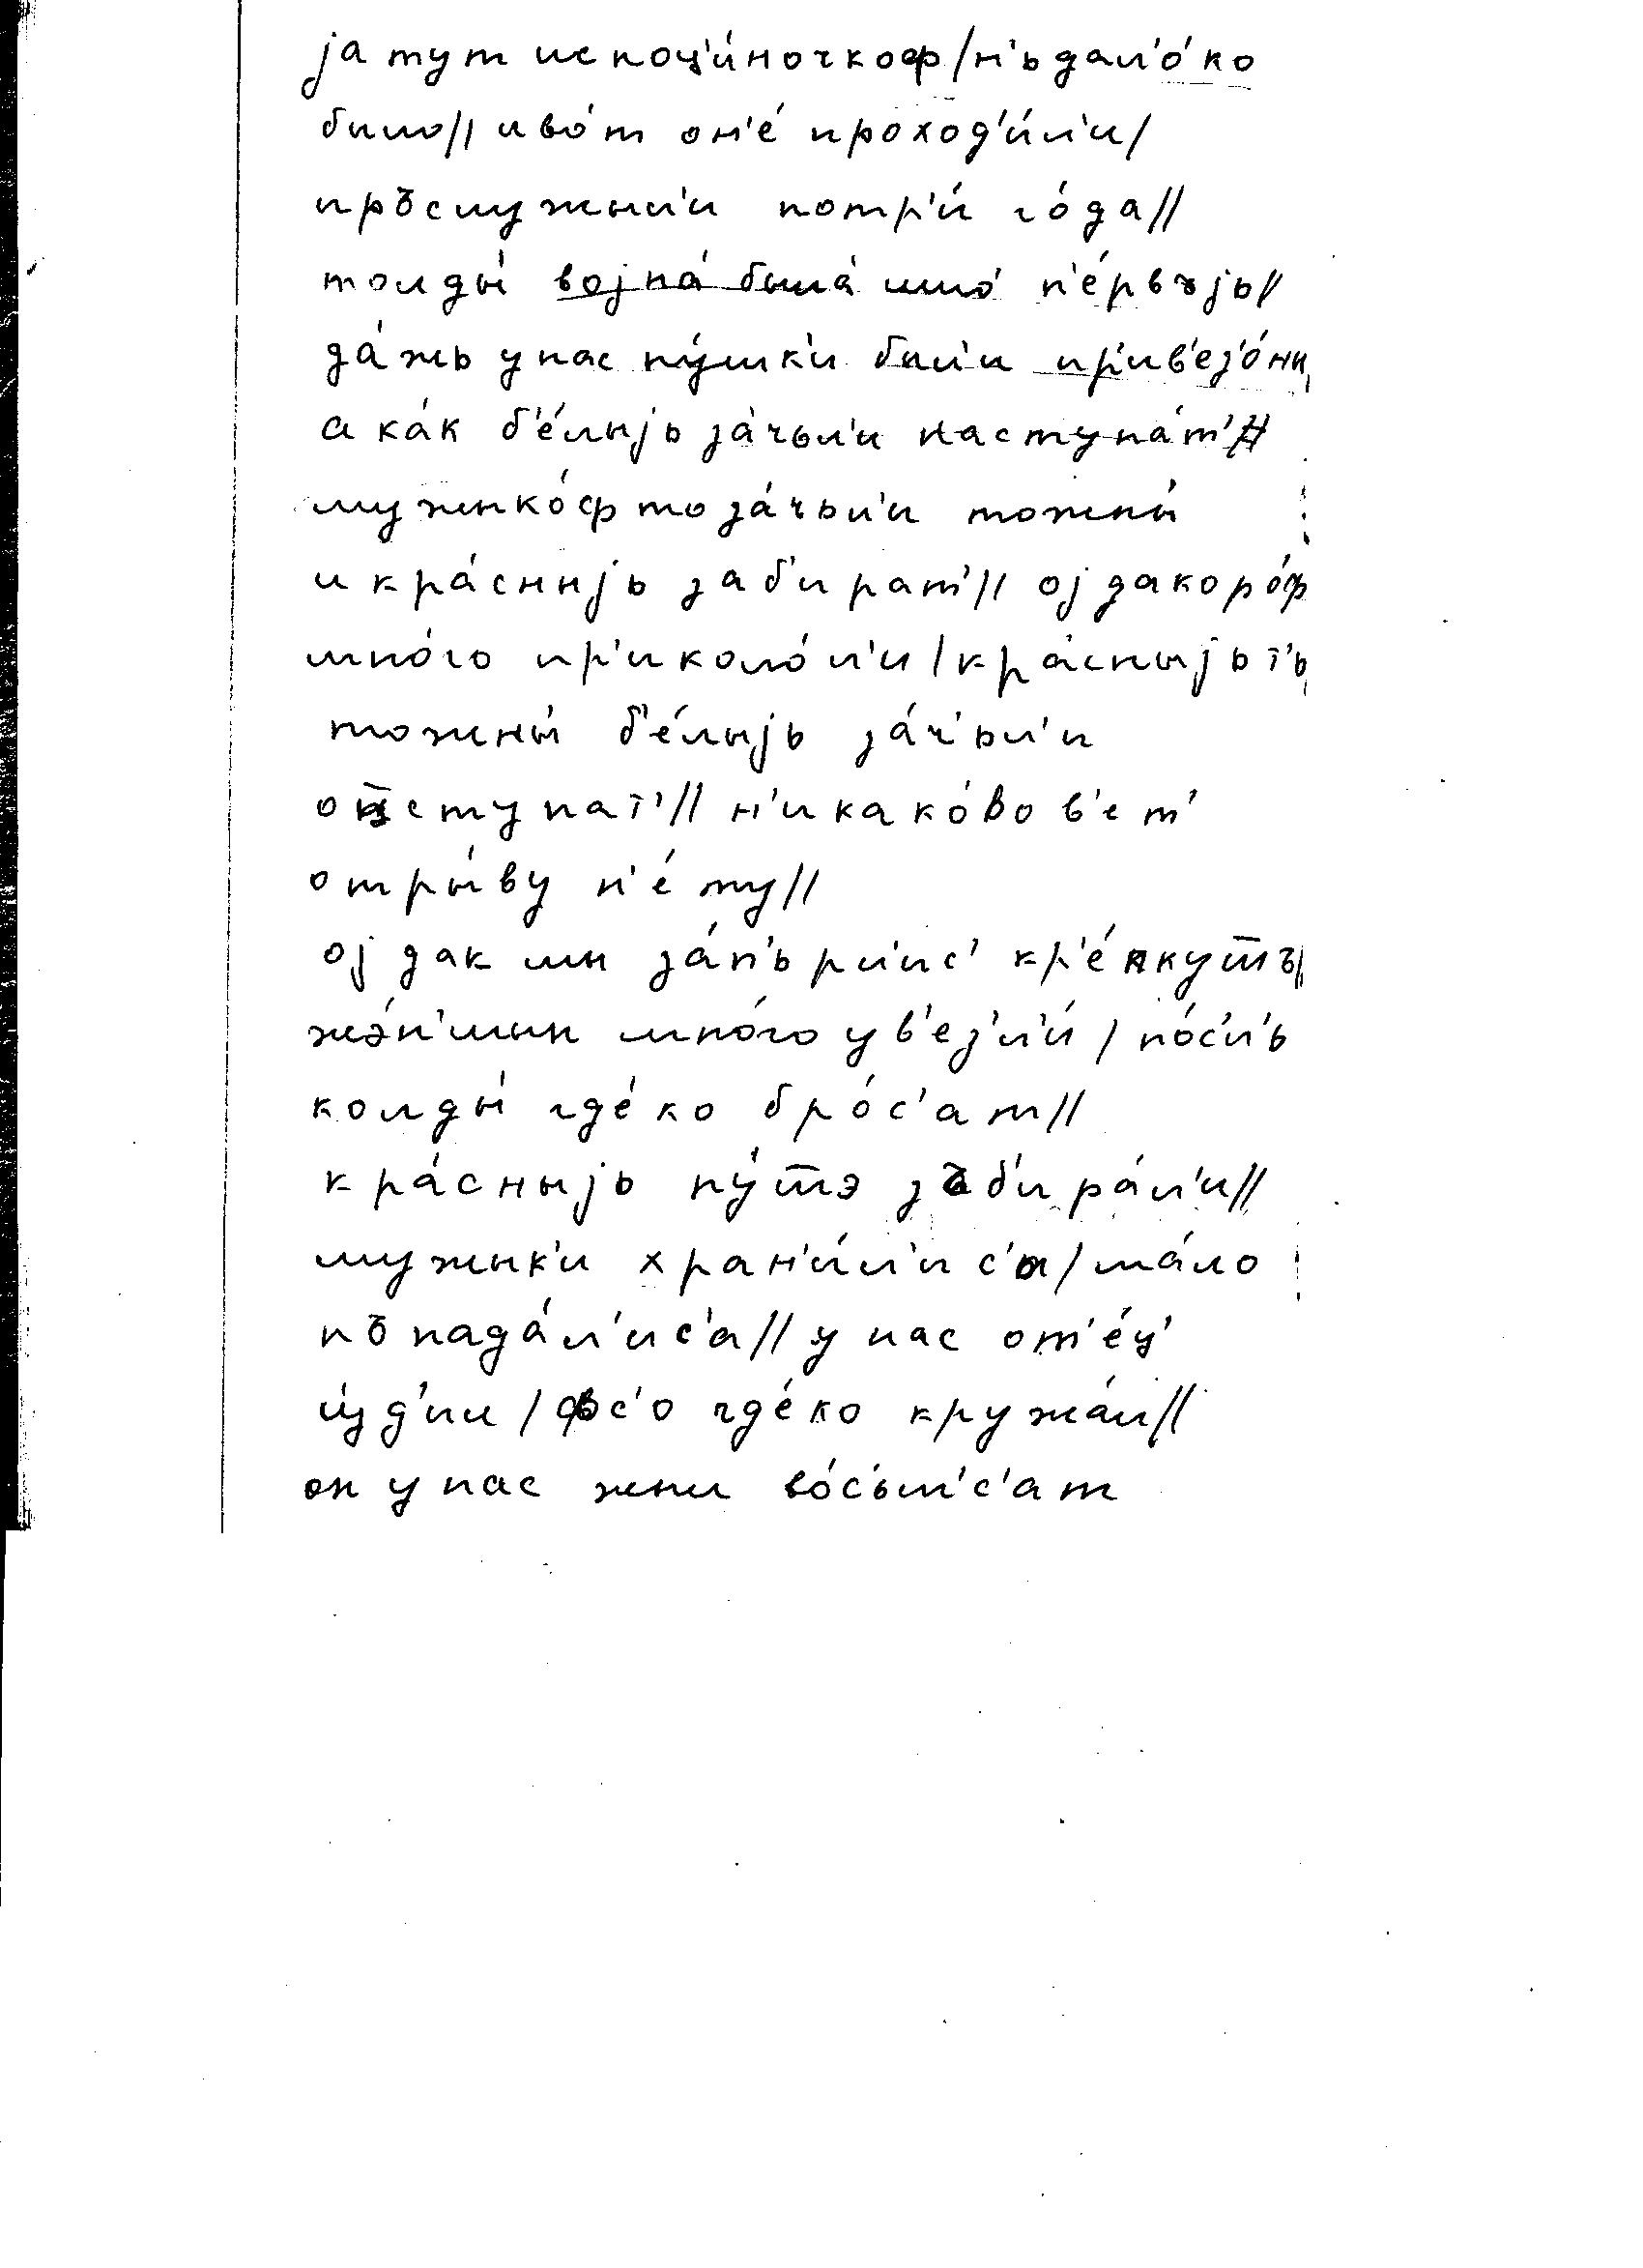 jа тут ис поц'и́ночкоф/н'ьдал'о́ко
было// иво́т он'е́ проход'и́л'и/
пръслужыл'и потр'и́ го́да//
толды́ војна́ была́ што́ п'е́рвъjь//
да́жъ унас пу́шк'и был'и пр'ив'ез'о́ны
а ка́к б'е́лыjь за́чьл'и наступа́т'//
мужыко́ф то за́чьл'и тожны́
и кра́сныjь заб'ират'// оj дакоро́ф
мно́го пр'иколо́л'и/кра́сныjьт'ь
тожны́ б'е́лыjь за́ч'ьл'и
о̄тступат'// н'икако́во в'ет'
отры́ву н'е́ту//
оj дак мы за́п'ьрл'ис' кр'е́пкутъ//
жэ́н'шын мно́го ув'езл'и́/по́с'л'ь
колды́ где́ко бро́с'ат//
кра́сныjь пу́т̄э зъб'ира́л'и//
мужык'и хран'и́л'ис'а/ма́ло
пъпада́л'ис'а// у нас от'е́ц'
и́зд'ил/фс'о где́ко кружа́л//
он унас жыл во́с'ьм'с'ат